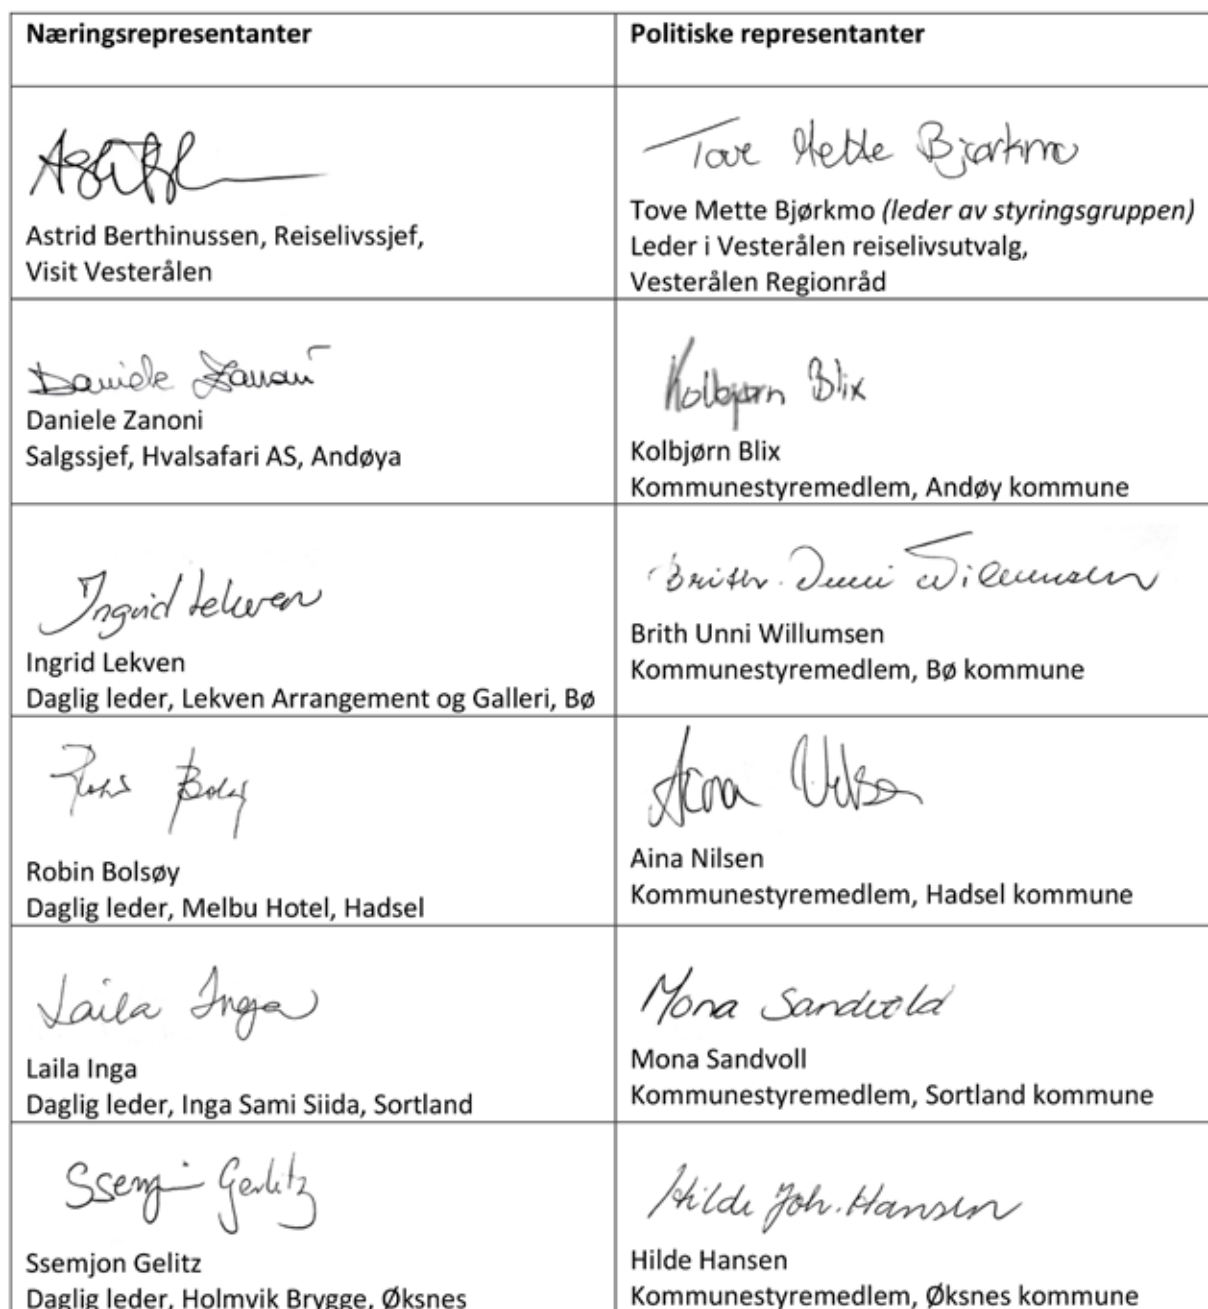 Næringsrepresentanter
Politiske representanter
Astrid Berthinussen, Reiselivssjef,
Visit Vesterålen
Tove Mette Bjørkmo
Tove Mette Bjørkmo (leder av styringsgruppen)
Leder i Vesterålen reiselivsutvalg,
Vesterålen Regionråd
Daniele Zanoni
Daniele Zanoni
Salgssjef, Hvalsafari AS, Andøya
Kolbjørn Blix
Kolbjørn Blix
Kommunestyremedlem, Andøy kommune
Ingrid Lekven
Ingrid Lekven
Daglig leder, Lekven Arrangement og Galleri, Bø
Brith Unni Willumsen
Brith Unni Willumsen
Kommunestyremedlem, Bø kommune
Robin Bolsøy
Daglig leder, Melbu Hotel, Hadsel
Aina Nilsen
Aina Nilsen
Kommunestyremedlem, Hadsel kommune
Laila Inga
Laila Inga
Daglig leder, Inga Sami Siida, Sortland
Mona Sandvoll
Mona Sandvoll
Kommunestyremedlem, Sortland kommune
Ssemjon Gerlitz
Ssemjon Gelitz
Daglig leder, Holmvik Brygge, Øksnes
Hilde Joh. Hansen
Hilde Hansen
Kommunestyremedlem, Øksnes kommune